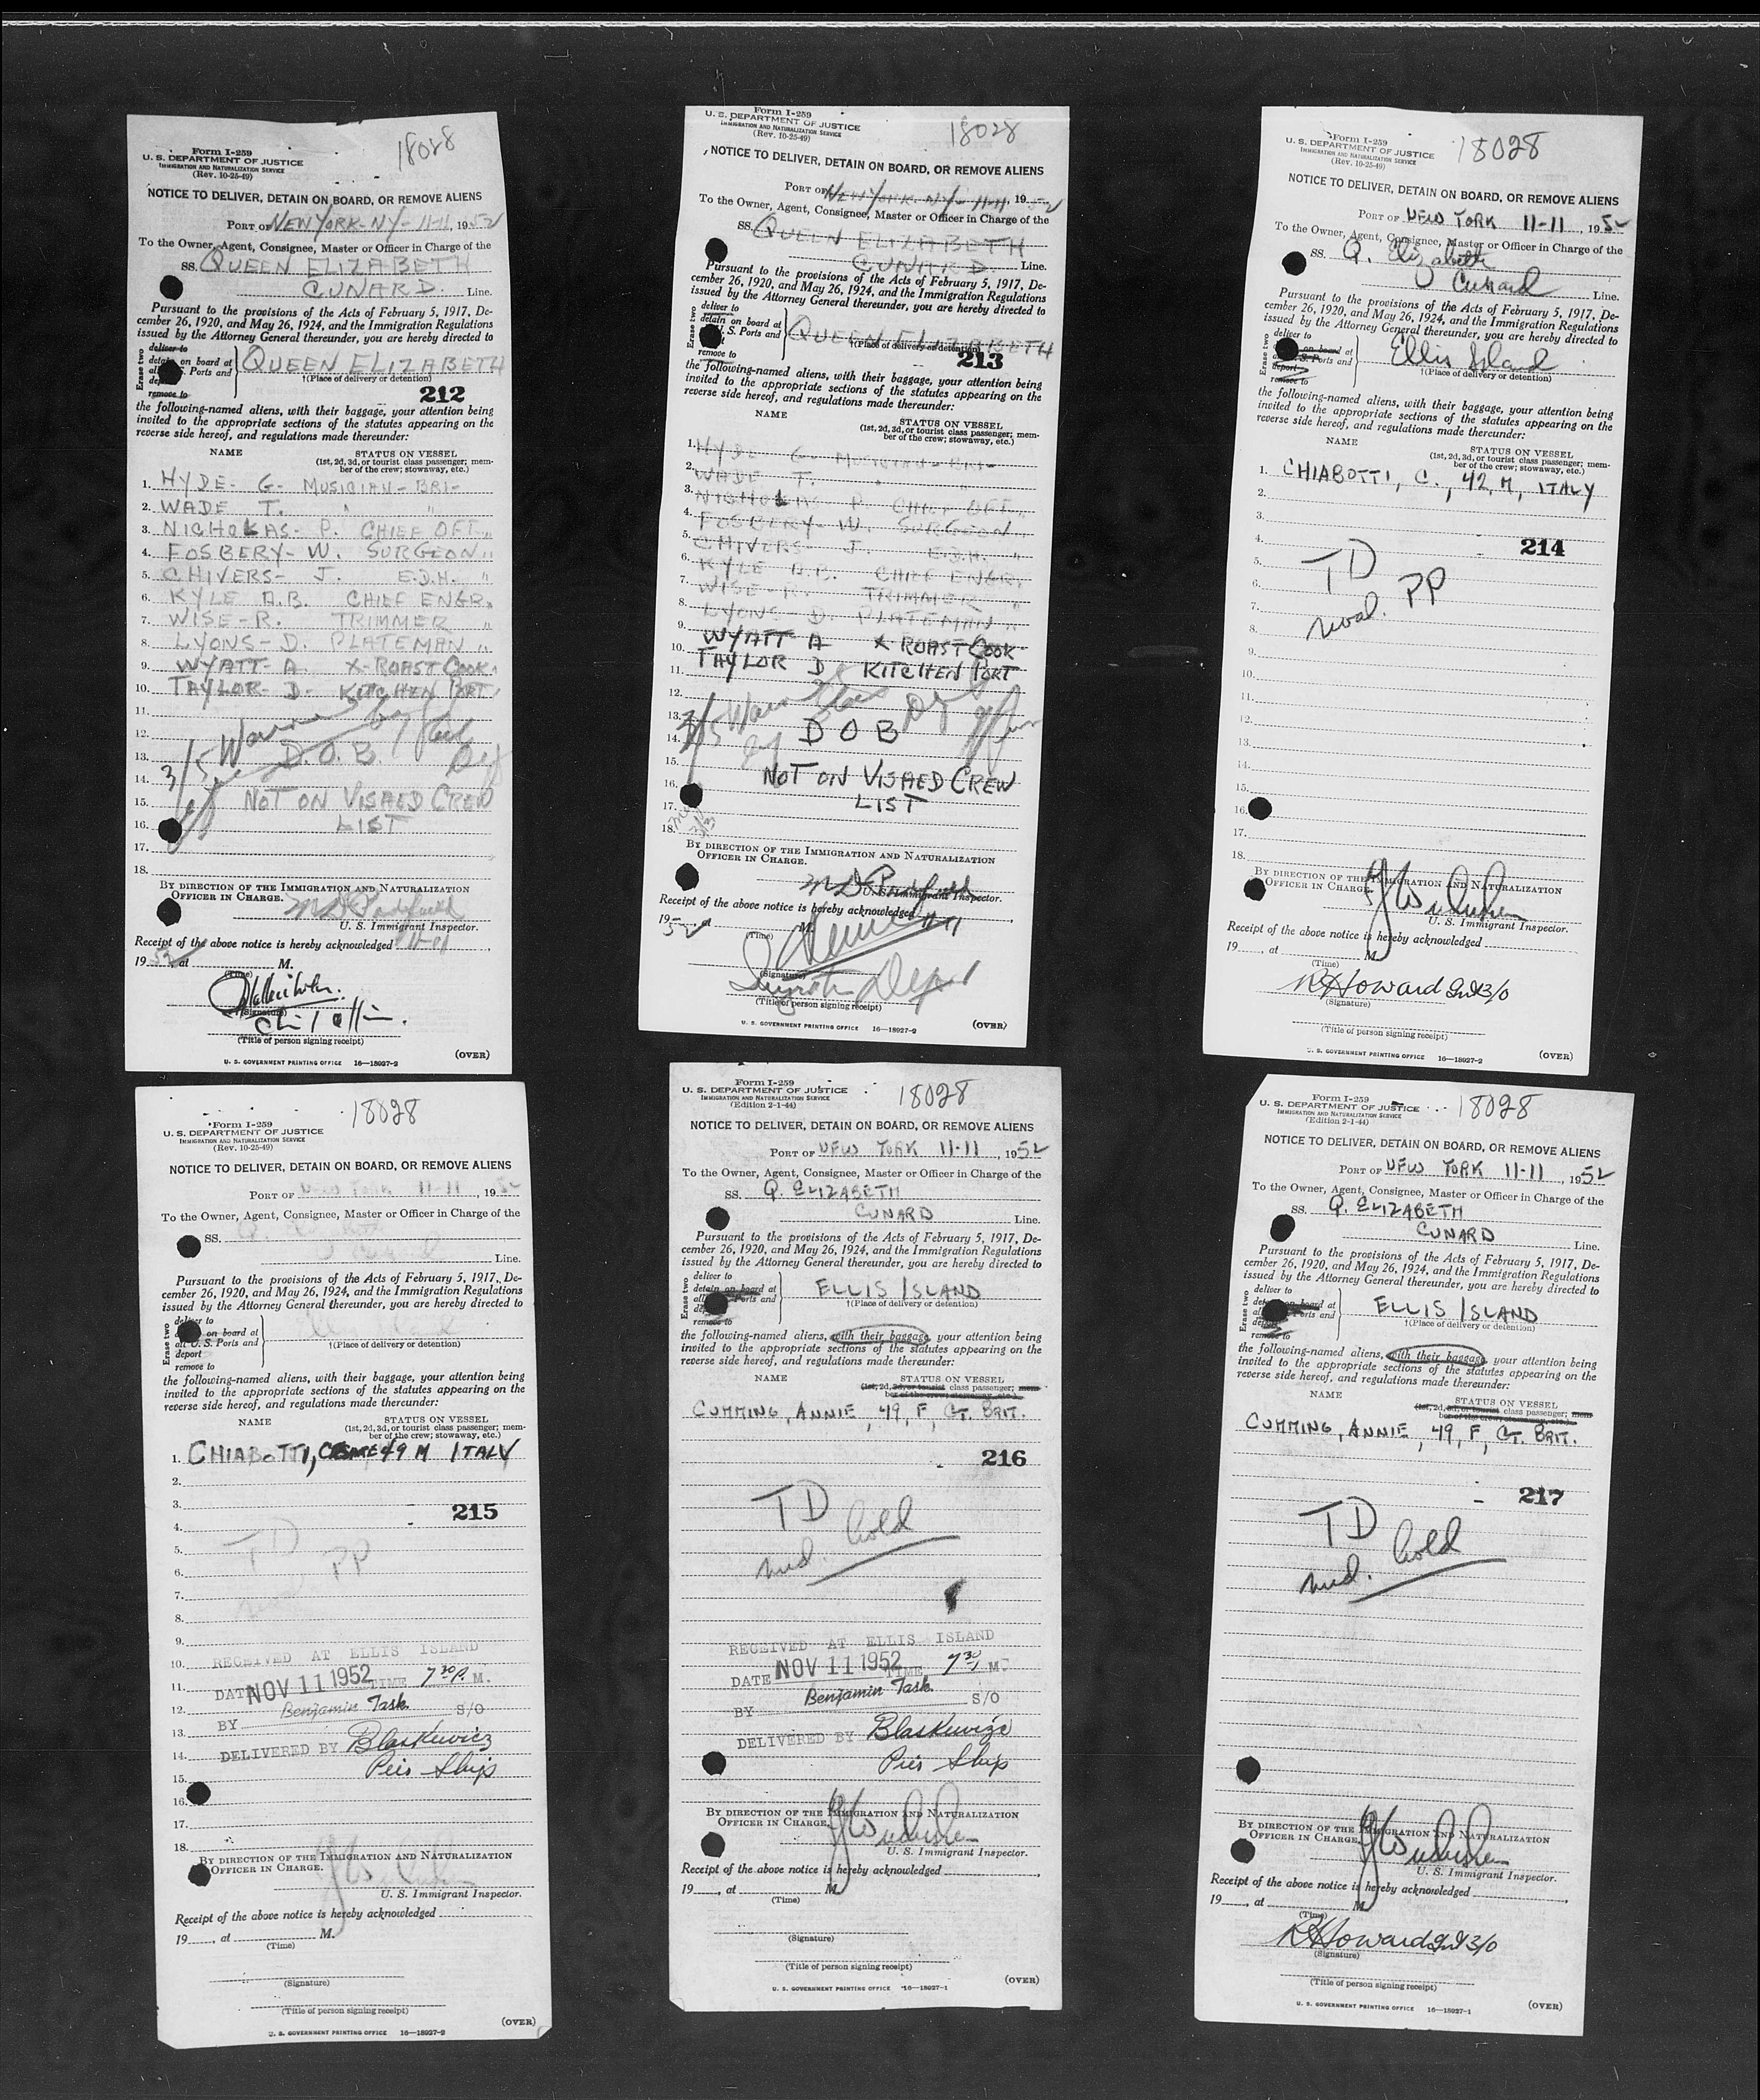 18028
Form I-259
U. S. DEPARTMENT OF JUSTICE
IMMIGRATION AND NATURALIZATION SERVICE
(Rev. 10-25-49)
NOTICE TO DELIVER, DETAIN ON BOARD, OR REMOVE ALIENS
PORT OF NEW YORK-NY- 11-11, 1952
To the Owner, Agent, Consignee, Master or Officer in Charge of the
SS. QUEEN ELIZABETH
CUNARD. Line.
Pursuant to the provisions of the Acts of February 5, 1917, De-
cember 26, 1920, and May 26, 1924, and the Immigration Regulations
issued by the Attorney General thereunder, you are hereby directed to
Erase two
deliver to
detain on board at
all U. S. Ports and
remove to
QUEEN ELIZABETH
†(Place of delivery or detention)
212
the following-named aliens, with their baggage, your attention being
invited to the appropriate sections of the statutes appearing on the
reverse side hereof, and regulations made thereunder:
NAME STATUS ON VESSEL
(1st, 2d, 3d, or tourist class passenger; mem-
ber of the crew; stowaway, etc.)
1. HYDE- G- MUSICIAN-BRI-
2. WADE T. " "
3. NICHOLAS- P. CHIEF OFF. "
4. FOSBERY- W. SURGEON "
5. CHIVERS- J. E.D.H. "
6. KYLE A.B. CHIEF ENGR. "
7. WISE-R. TRIMMER "
8. LYONS-D. PLATEMAN "
9. WYATT-A. X-ROAST COOK-
10. TAYLOR-D- KITCHEN PORT.
11.
12.
13. D.O.B.
14. 3/5
15. NOT ON VISAED CREW
16. LIST
17.
18.
BY DIRECTION OF THE IMMIGRATION AND NATURALIZATION
OFFICER IN CHARGE.
U. S. Immigrant Inspector.
Receipt of the above notice is hereby acknowledged 11-11
1952 at M.
(Time)
(Signature)
(Title of person signing receipt)
U. S. GOVERNMENT PRINTING OFFICE 16—18927-2 (OVER)
18028
Form I-259
U. S. DEPARTMENT OF JUSTICE
IMMIGRATION AND NATURALIZATION SERVICE
(Rev. 10-25-49)
NOTICE TO DELIVER, DETAIN ON BOARD, OR REMOVE ALIENS
PORT OF NEW YORK-NY- 11-11, 1952
To the Owner, Agent, Consignee, Master or Officer in Charge of the
SS. QUEEN ELIZABETH
CUNARD. Line.
Pursuant to the provisions of the Acts of February 5, 1917, De-
cember 26, 1920, and May 26, 1924, and the Immigration Regulations
issued by the Attorney General thereunder, you are hereby directed to
Erase two
deliver to
detain on board at
U. S. Ports and
remove to
QUEEN ELIZABETH
†(Place of delivery or detention)
213
the following-named aliens, with their baggage, your attention being
invited to the appropriate sections of the statutes appearing on the
reverse side hereof, and regulations made thereunder:
NAME STATUS ON VESSEL
(1st, 2d, 3d, or tourist class passenger; mem-
ber of the crew; stowaway, etc.)
1. HYDE- G- MUSICIAN-BRI-
2. WADE T. "
3. NICHOLAS P. CHIEF OFF. "
4. FOSBERY- W. SURGEON "
5. CHIVERS- J. E.D.H. "
6. KYLE A.B. CHIEF ENGR.
7. WISE-R. TRIMMER "
8. LYONS-D. PLATEMAN "
9. WYATT A X ROAST COOK
10. TAYLOR D KITCHEN PORT
11.
12.
13. 3/5
14. D O B
15.
16. NOT ON VISAED CREW
17. LIST
18.
BY DIRECTION OF THE IMMIGRATION AND NATURALIZATION
OFFICER IN CHARGE.
U. S. Immigrant Inspector.
Receipt of the above notice is hereby acknowledged 11-11
1952 at M.
(Time)
(Signature)
(Title of person signing receipt)
U. S. GOVERNMENT PRINTING OFFICE 16—18927-2 (OVER)
18028
Form I-259
U. S. DEPARTMENT OF JUSTICE
IMMIGRATION AND NATURALIZATION SERVICE
(Rev. 10-25-49)
NOTICE TO DELIVER, DETAIN ON BOARD, OR REMOVE ALIENS
PORT OF NEW YORK 11-11, 1952
To the Owner, Agent, Consignee, Master or Officer in Charge of the
SS. Q. Elizabeth
Cunard Line.
Pursuant to the provisions of the Acts of February 5, 1917, De-
cember 26, 1920, and May 26, 1924, and the Immigration Regulations
issued by the Attorney General thereunder, you are hereby directed to
Erase two
deliver to
on board at
all U. S. Ports and
deport
remove to
Ellis Island
†(Place of delivery or detention)
the following-named aliens, with their baggage, your attention being
invited to the appropriate sections of the statutes appearing on the
reverse side hereof, and regulations made thereunder:
NAME STATUS ON VESSEL
(1st, 2d, 3d, or tourist class passenger; mem-
ber of the crew; stowaway, etc.)
1. CHIABOTTI, C., 42, M, ITALY
2.
3.
4. 214
5. TD
6. PP
7.
8.
9.
10.
11.
12.
13.
14.
15.
16.
17.
18.
BY DIRECTION OF THE IMMIGRATION AND NATURALIZATION
OFFICER IN CHARGE.
U. S. Immigrant Inspector.
Receipt of the above notice is hereby acknowledged
19 , at M.
(Time)
R Howard Int 3/0
(Signature)
(Title of person signing receipt)
U. S. GOVERNMENT PRINTING OFFICE 16—18927-2 (OVER)
18028
Form I-259
U. S. DEPARTMENT OF JUSTICE
IMMIGRATION AND NATURALIZATION SERVICE
(Rev. 10-25-49)
NOTICE TO DELIVER, DETAIN ON BOARD, OR REMOVE ALIENS
PORT OF New York 11-11, 1952
To the Owner, Agent, Consignee, Master or Officer in Charge of the
SS.
Line.
Pursuant to the provisions of the Acts of February 5, 1917, De-
cember 26, 1920, and May 26, 1924, and the Immigration Regulations
issued by the Attorney General thereunder, you are hereby directed to
Erase two
deliver to
on board at
all U. S. Ports and
deport
remove to
†(Place of delivery or detention)
the following-named aliens, with their baggage, your attention being
invited to the appropriate sections of the statutes appearing on the
reverse side hereof, and regulations made thereunder:
NAME STATUS ON VESSEL
(1st, 2d, 3d, or tourist class passenger; mem-
ber of the crew; stowaway, etc.)
1. CHIABOTTI, 49 M ITALY
2.
3. 215
4.
5. TD
6. PP
7.
8.
9.
10. RECEIVED AT ELLIS ISLAND
11. DATE NOV 11 1952 TIME 7 30 P. M.
12. BY Benjamin Task S/O
13.
14. DELIVERED BY Blaskewicz
15. Pier Ship
16.
17.
18.
BY DIRECTION OF THE IMMIGRATION AND NATURALIZATION
OFFICER IN CHARGE.
U. S. Immigrant Inspector.
Receipt of the above notice is hereby acknowledged
19 , at M.
(Time)
(Signature)
(Title of person signing receipt)
U. S. GOVERNMENT PRINTING OFFICE 16—18927-2 (OVER)
18028
Form I-259
U. S. DEPARTMENT OF JUSTICE
IMMIGRATION AND NATURALIZATION SERVICE
(Edition 2-1-44)
NOTICE TO DELIVER, DETAIN ON BOARD, OR REMOVE ALIENS
PORT OF NEW YORK 11-11, 1952
To the Owner, Agent, Consignee, Master or Officer in Charge of the
SS. Q. ELIZABETH
CUNARD Line.
Pursuant to the provisions of the Acts of February 5, 1917, De-
cember 26, 1920, and May 26, 1924, and the Immigration Regulations
issued by the Attorney General thereunder, you are hereby directed to
Erase two
deliver to
detain on board at
all Ports and
remove to
ELLIS ISLAND
†(Place of delivery or detention)
the following-named aliens, with their baggage, your attention being
invited to the appropriate sections of the statutes appearing on the
reverse side hereof, and regulations made thereunder:
NAME STATUS ON VESSEL
(1st, 2d, 3d, or tourist class passenger; mem-
ber of the crew, stowaway, etc.)
CUMMING, ANNIE, 49, F, GT. BRIT.
216
TD
med. hold
RECEIVED AT ELLIS ISLAND
DATE NOV 11 1952 TIME 7 30 M.
BY Benjamin Task S/O
DELIVERED BY Blaskewicz
Pier Ship
BY DIRECTION OF THE IMMIGRATION AND NATURALIZATION
OFFICER IN CHARGE.
U. S. Immigrant Inspector.
Receipt of the above notice is hereby acknowledged
19 , at M.
(Time)
(Signature)
(Title of person signing receipt)
U. S. GOVERNMENT PRINTING OFFICE 16—18927-1 (OVER)
18028
Form I-259
U. S. DEPARTMENT OF JUSTICE
IMMIGRATION AND NATURALIZATION SERVICE
(Edition 2-1-44)
NOTICE TO DELIVER, DETAIN ON BOARD, OR REMOVE ALIENS
PORT OF NEW YORK 11-11, 1952
To the Owner, Agent, Consignee, Master or Officer in Charge of the
SS. Q. ELIZABETH
CUNARD Line.
Pursuant to the provisions of the Acts of February 5, 1917, De-
cember 26, 1920, and May 26, 1924, and the Immigration Regulations
issued by the Attorney General thereunder, you are hereby directed to
Erase two
deliver to
on board at
Ports and
deport
remove to
ELLIS ISLAND
†(Place of delivery or detention)
the following-named aliens, with their baggage, your attention being
invited to the appropriate sections of the statutes appearing on the
reverse side hereof, and regulations made thereunder:
NAME STATUS ON VESSEL
(1st, 2d, 3d, or tourist class passenger; mem-
ber of the crew, stowaway, etc.)
CUMMING, ANNIE, 49, F, GT. BRIT.
217
TD
med. hold
BY DIRECTION OF THE IMMIGRATION AND NATURALIZATION
OFFICER IN CHARGE.
U. S. Immigrant Inspector.
Receipt of the above notice is hereby acknowledged
19 , at M.
(Time)
R Howard Int 3/0
(Signature)
(Title of person signing receipt)
U. S. GOVERNMENT PRINTING OFFICE 16—18927-1 (OVER)